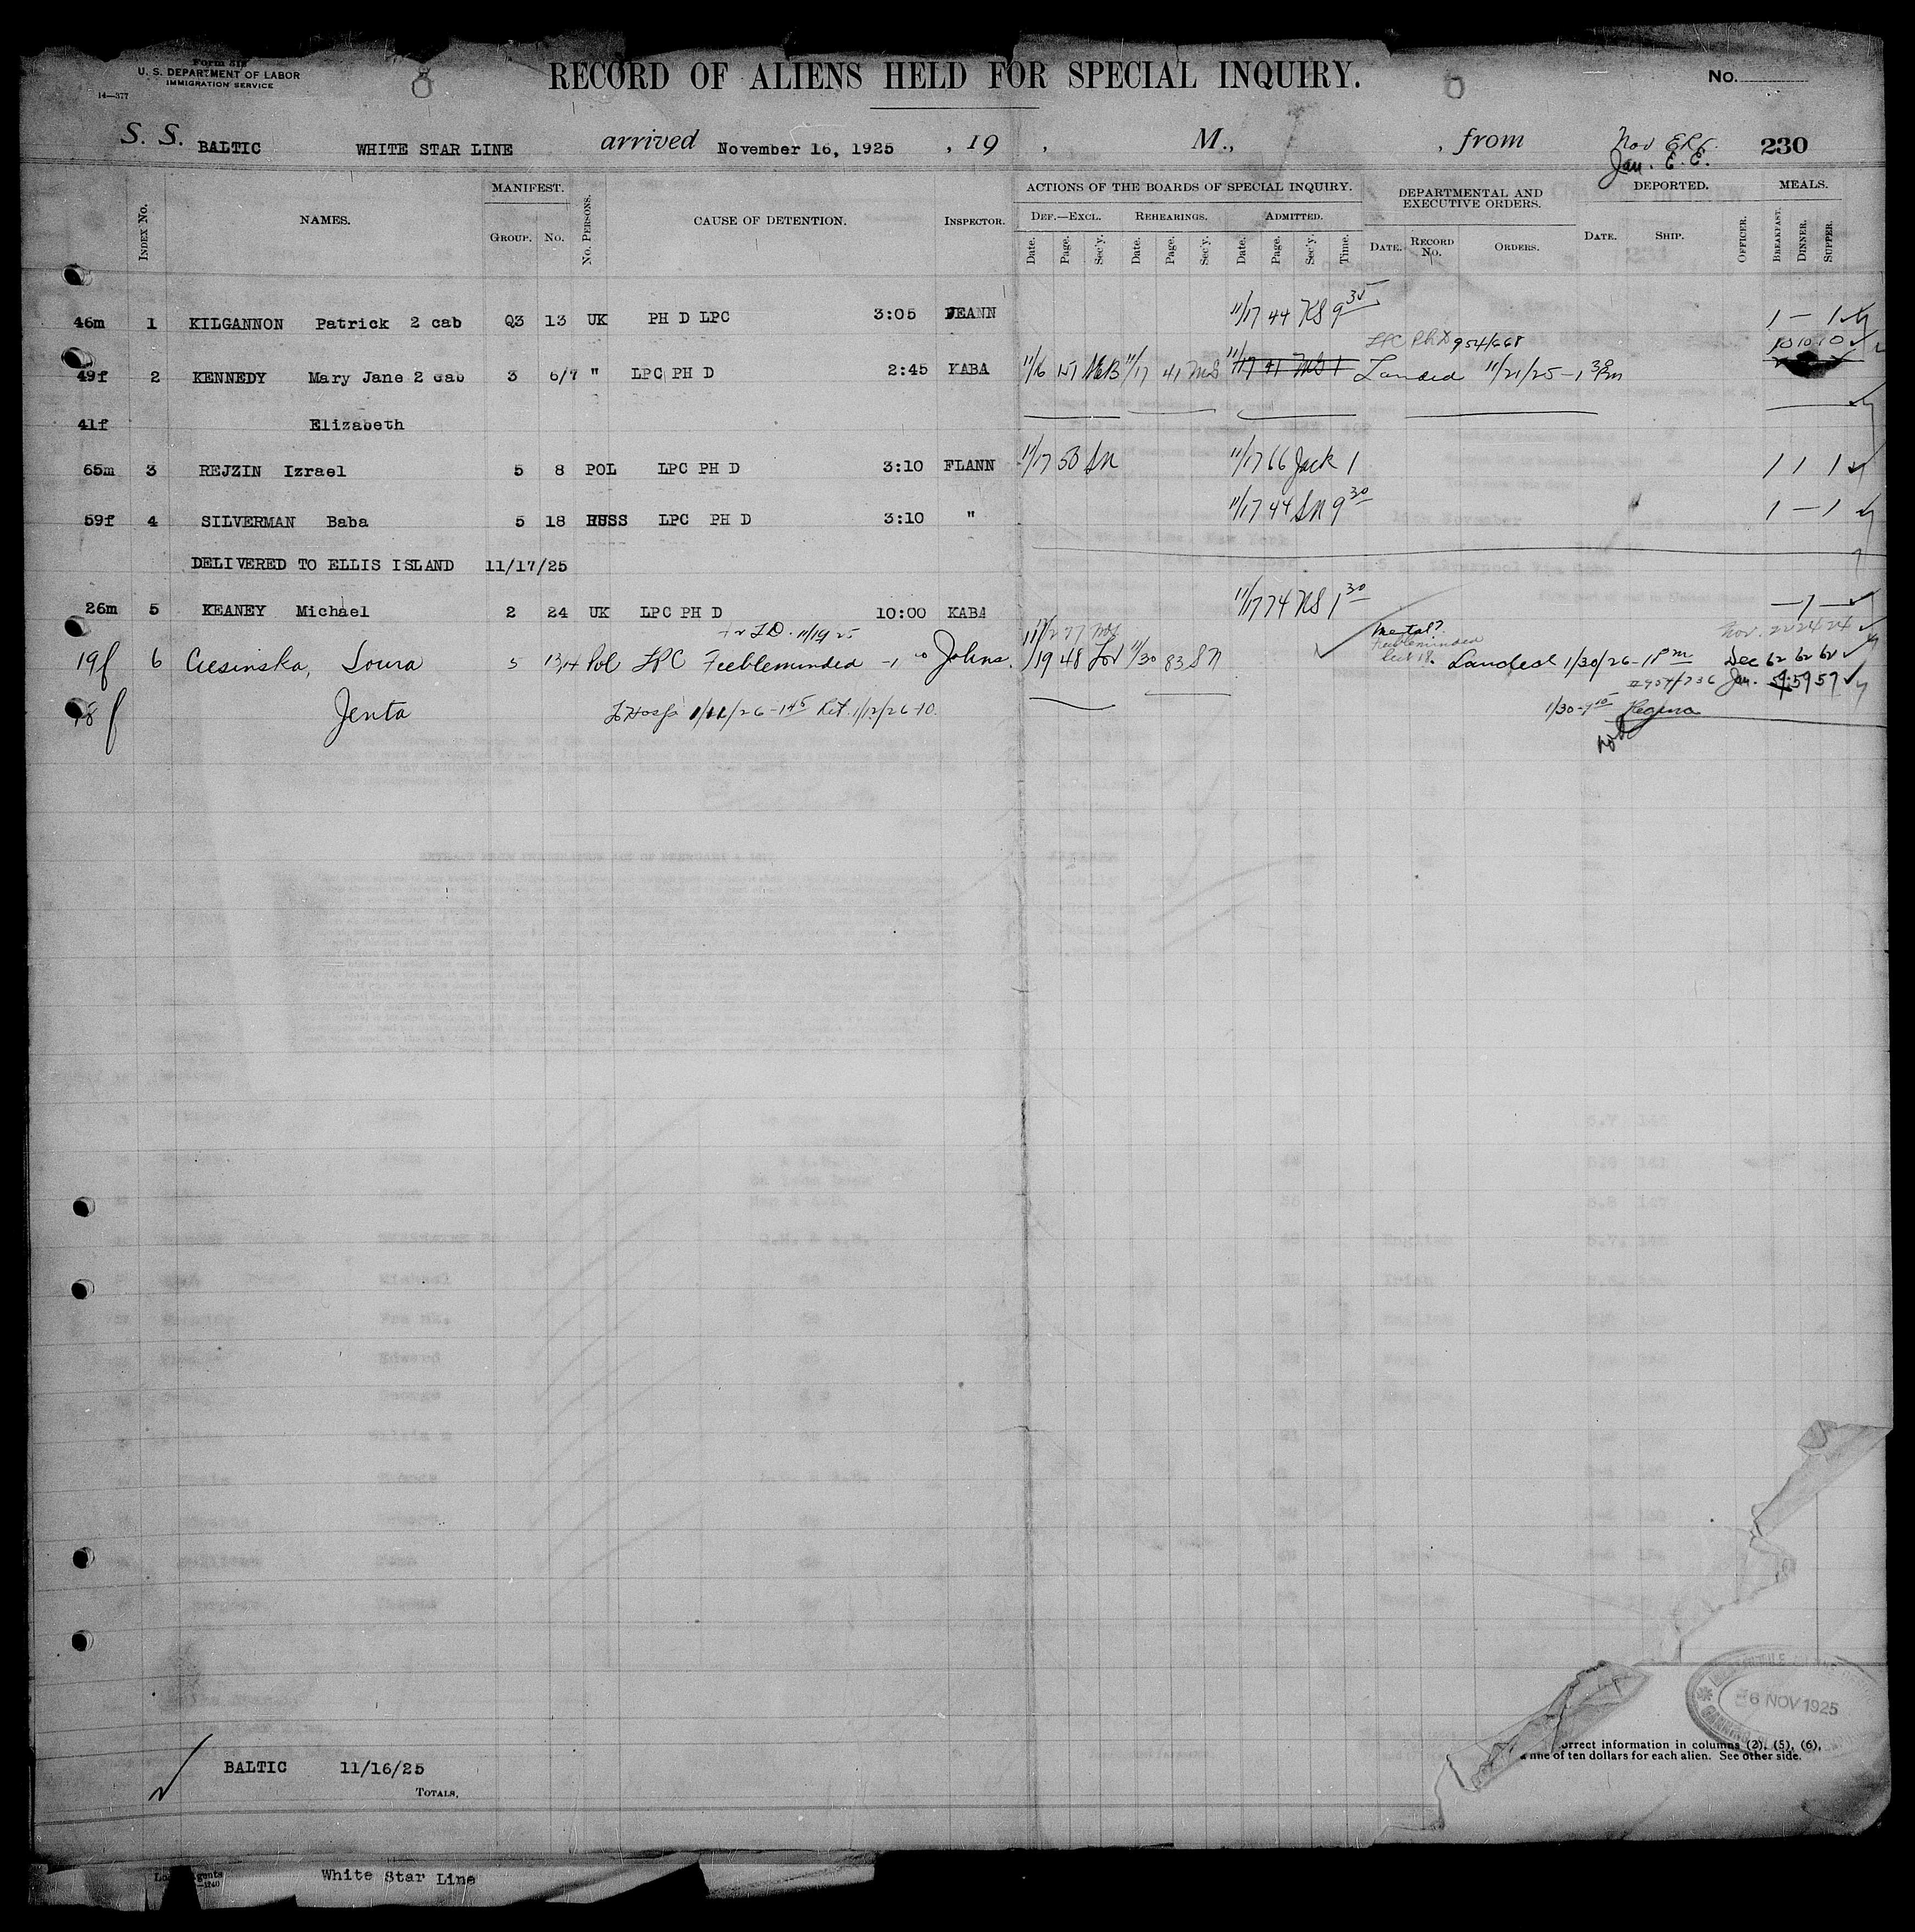 Form 819
U. S. DEPARTMENT OF LABOR
IMMIGRATION SERVICE
14—377
RECORD OF ALIENS HELD FOR SPECIAL INQUIRY.
No.
S. S. BALTIC WHITE STAR LINE arrived November 16, 1925 , 19 , M., , from
Nov 230
Jan. E. E.
INDEX No. NAMES. MANIFEST. GROUP. No. No. PERSONS. CAUSE OF DETENTION. INSPECTOR. ACTIONS OF THE BOARDS OF SPECIAL INQUIRY. DEF.—EXCL. Date. Page. Sec'y. REHEARINGS. Date. Page. Sec'y. ADMITTED. Date. Page. Sec'y. Time. DEPARTMENTAL AND EXECUTIVE ORDERS. DATE. RECORD No. ORDERS. DEPORTED. DATE. SHIP. OFFICER. MEALS. BREAKFAST. DINNER. SUPPER.
46m 1 KILGANNON Patrick 2 cab Q3 13 UK PH D LPC 3:05 JEANN 11/17 44 KS 9 35 1 — 1
LPC Ph D 954/668 10 10 10
49f 2 KENNEDY Mary Jane 2 cab 3 6/7 " LPC PH D 2:45 KABA 11/16 151 11/17 41 MS 11/17 41 MS 1 Landed 11/21/25 - 1 30 Pm
41f Elizabeth
65m 3 REJZIN Izrael 5 8 POL LPC PH D 3:10 FLANN 11/17 50 SN 11/17 66 Jack 1 1 1 1
59f 4 SILVERMAN Baba 5 18 RUSS LPC PH D 3:10 " 11/17 44 SN 9 30 1 — 1
DELIVERED TO ELLIS ISLAND 11/17/25
26m 5 KEANEY Michael 2 24 UK LPC PH D 10:00 KABA 11/17 74 KS 1 30 — 1 —
11/19 25 11/27 77 Mental? Feebleminded Nov. 24 24 24
19f 6 Ciesinska, Soura 5 13/14 Pol LPC Feebleminded - 1 00 Johns. 11/19 48 11/30 83 SN Landed 1/30/26 - 1 Pm Dec 62 62 62
#954/736 Jan. 57 59 57
18f Jenta To Hosp 1/11/26 - 1 45 Ret. 1/12/26 - 10. 1/30 - 9 10 Regina
6 NOV 1925
correct information in columns (2), (5), (6),
a fine of ten dollars for each alien. See other side.
BALTIC 11/16/25
TOTALS,
White Star Line